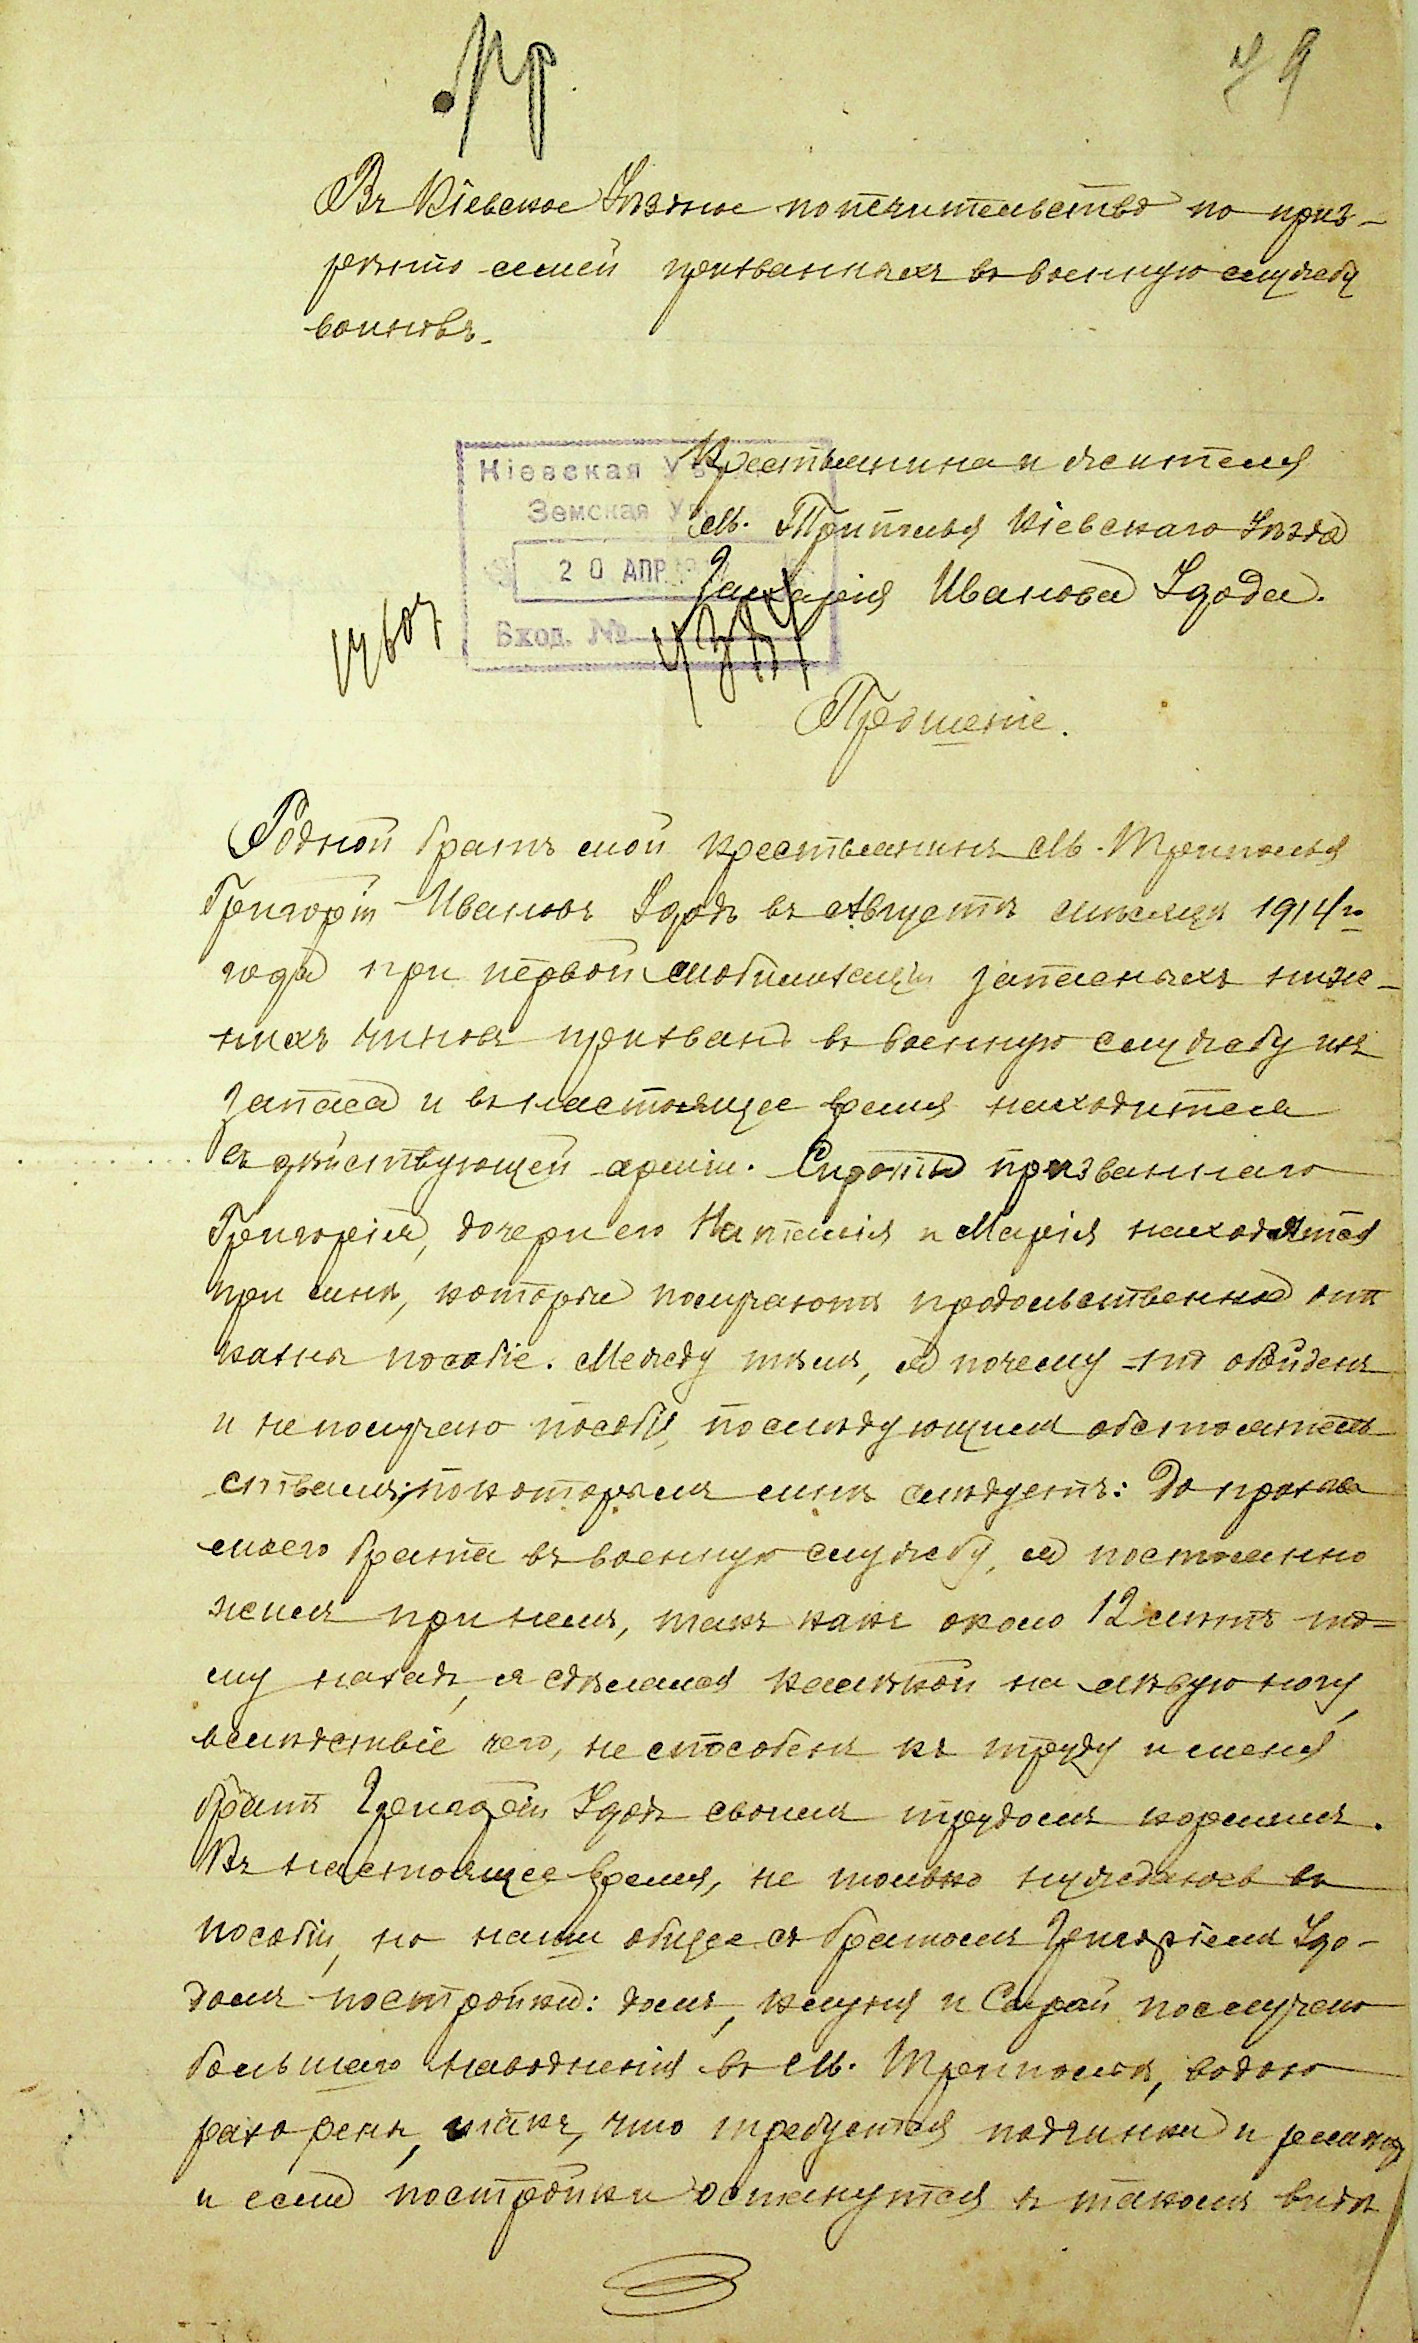 Пр.
79
Въ Кіевское Уѣздное попечительство по приз-
рѣнію семей призванныхъ въ военную службу
воиновъ.
Крестьянина и жителя
м. Триполья Кіевскаго Уѣзда
Захарія Иванова Удода.
Кіевская
Земская
20 АПР
Вход. №
Прошеніе.
Родной братъ мой крестьянинъ м. Триполья
Григорій Ивановъ Удодъ въ Августѣ мѣсяцѣ 1914 го
года при первой мобилизаціи запасныхъ ниж-
нихъ чиновъ призванъ въ военную службу изъ
запаса и въ настоящее время находится
въ дѣйствующей арміи. Сироты призваннаго
Григорія, дочери его Наталія и Марія находятся
при мнѣ, которые получаютъ продовольственное отъ
казны пособіе. Между тѣмъ, я почему-то обойденъ
и не получаю пособія, по слѣдующимъ обстоятель
ствамъ, по которымъ мнѣ слѣдуетъ: До призыва
моего брата въ военную службу, я постоянно
жилъ при немъ, такъ какъ около 12 лѣтъ то-
му назадъ, я сдѣлался калѣкой на лѣвую ногу,
вслѣдствіе чего, не способенъ къ труду и меня
братъ Григорій Удодъ своимъ трудомъ кормилъ.
Въ настоящее время, не только нуждаюсь въ
пособіи, но наши общее съ братомъ Григоріемъ Удо-
домъ постройки: домъ, клуня и Сарай по случаю
большаго наводненія въ м. Трипольѣ, водою
разорены, такъ, что требуется починки и ремонта
и если постройки останутся въ такомъ видѣ